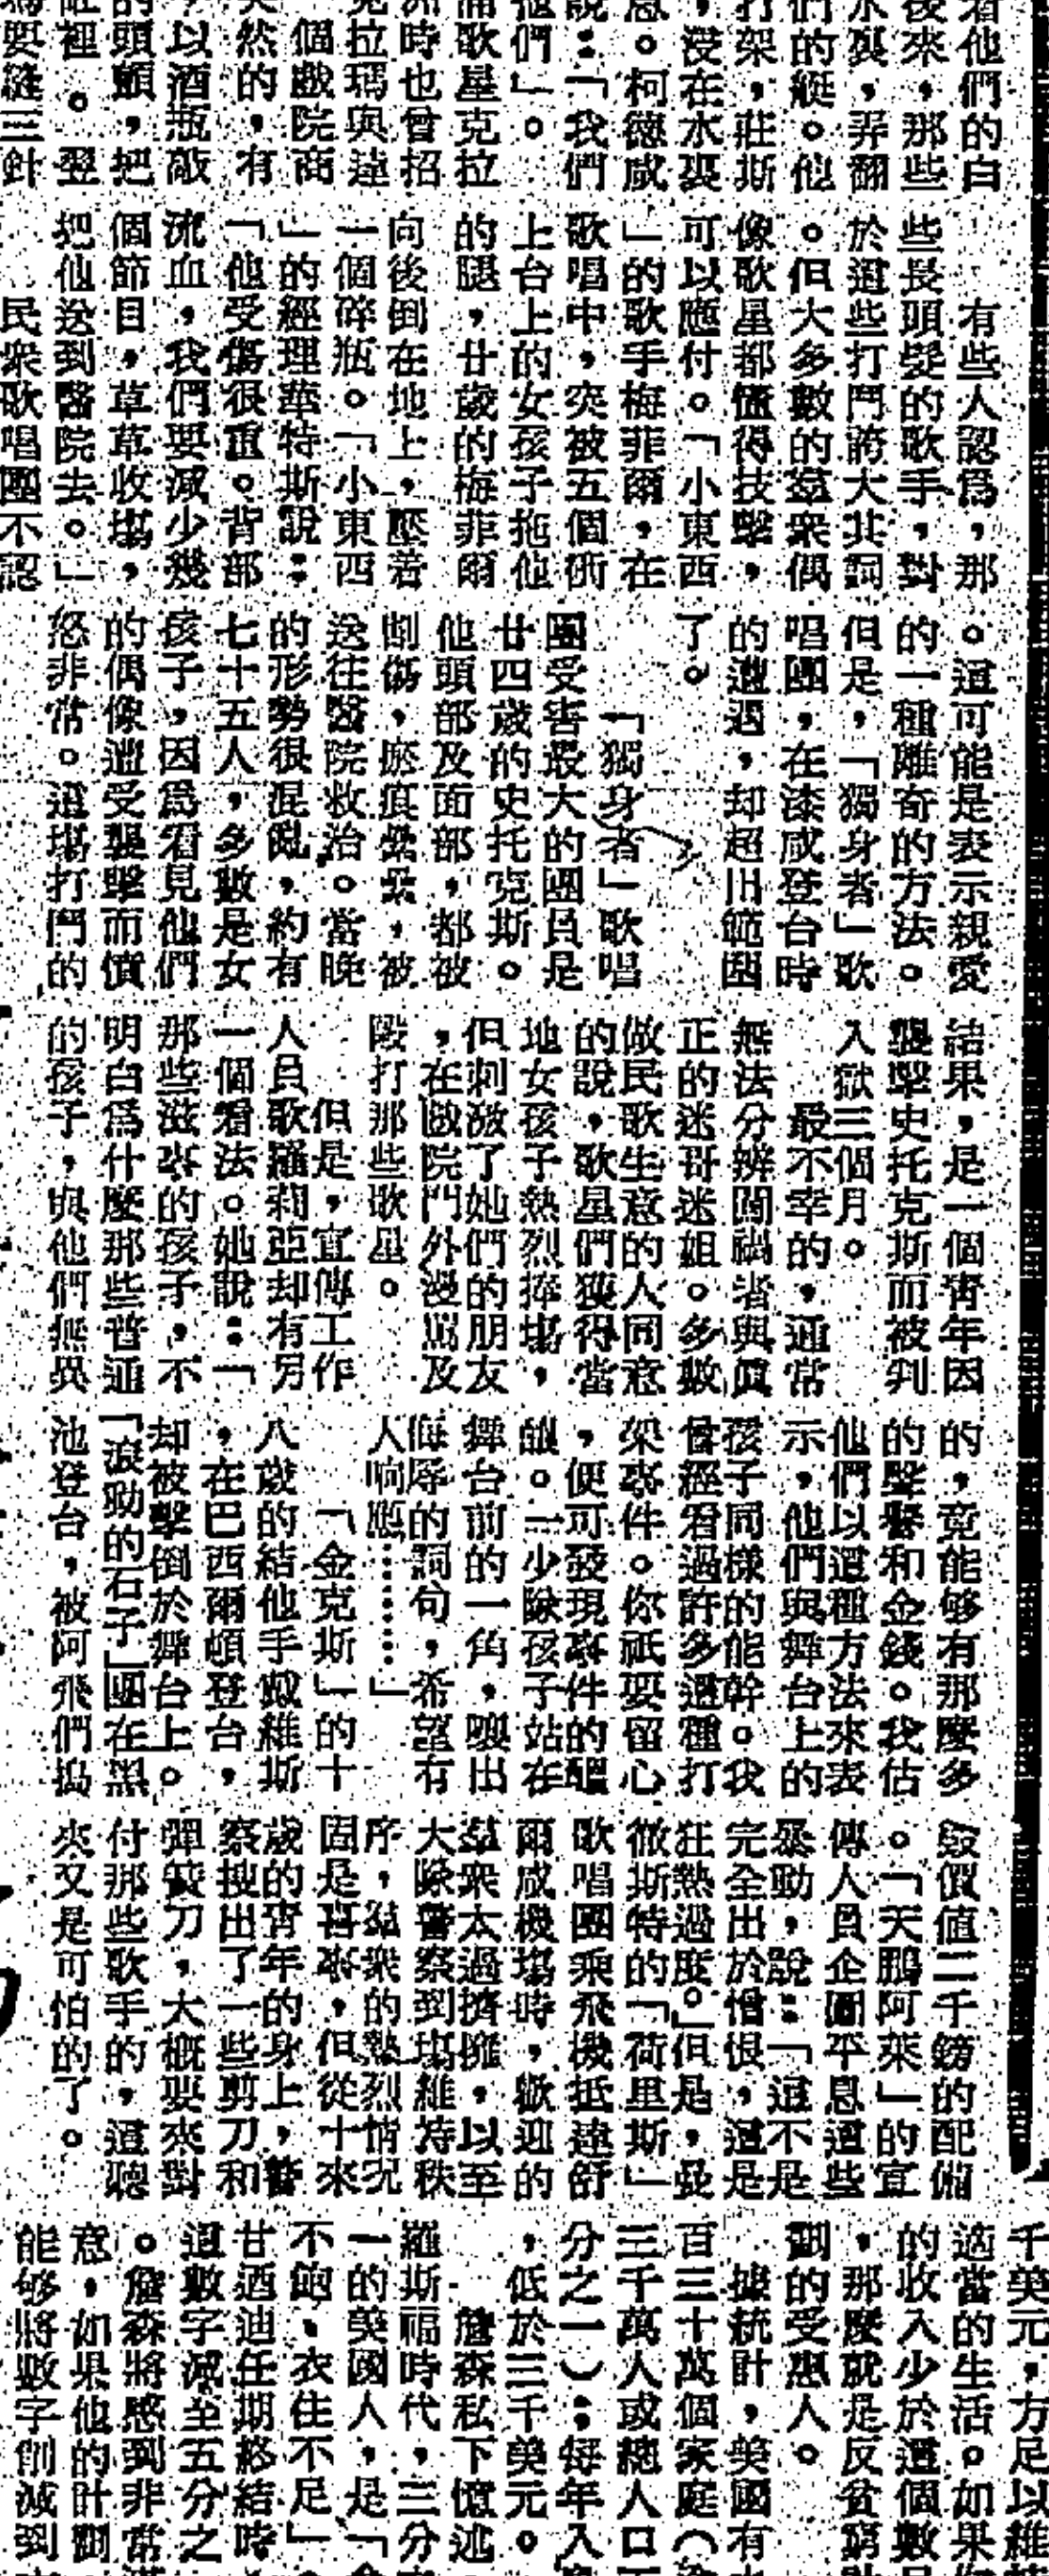 看他們的白
後來，那些
水裏，弄翻
們的艇。他
打架，莊斯
，浸在水裏
息。柯德咸
說：「我們
他們」。
歌星克拉
時也曾招
克拉瑪與達
個戲院商
然的，有
，以酒瓶敲
的頭顱，把
裡。翌
要縫三針
有些人認爲，那
些長頭髮的歌手，對
於這些打鬥誇大其詞
。但大多數的羣衆偶
像歌星都懂得技擊，
可以應付。「小東西
」的歌手梅菲爾，在
歌唱中，突被五個衝
上台上的女孩子拖他
的腿，廿歲的梅菲爾
向後倒在地上，壓着
一個碎瓶。「小東西
」的經理華特斯說：
「他受傷很重。背部
流血，我們要減少幾
個節目，草草收場，
把他送到醫院去。」
民衆歌唱團不認
。這可能是表示親愛
的一種離奇的方法。
但是，「獨身者」歌
唱團，在漆咸登台時
的遭遇，却超出範圍
了。
「獨身者」歌唱
團受害最大的團員是
廿四歲的史托克斯。
他頭部及面部，都被
割傷，瘀痕纍纍，被
送往醫院救治。當晚
的形勢很混亂，約有
七十五人，多數是女
孩子，因爲看見他們
的偶像遭受襲擊而憤
怒非常。這場打鬥的
結果，是一個靑年因
襲擊史托克斯而被判
入獄三個月。
最不幸的，通常
無法分辨闖禍者與眞
正的迷哥迷姐。多數
做民歌生意的人同意
的說，歌星們獲得當
地女孩子熱烈捧塲，
但刺激了她們的朋友
，在戲院門外漫罵及
毆打那些歌星。
但是，宣傳工作
人員歌羅莉亞却有另
一個看法。她說：「
那些滋事的孩子，不
明白爲什麼那些普通
的孩子，與他們無異
的，竟能够有那麼多
的聲譽和金錢。我估
他們以這種方法來表
示，他們與舞台上的
孩子同樣的能幹。我
曾經看過許多這種打
架事件。你祇要留心
，便可發現事件的醞
釀。一少隊孩子站在
舞台前的一角，喊出
侮辱的詞句，希望有
人响應……」
「金克斯」的十
八歲的結他手戴維斯
，在巴西爾頓登台，
却被擊倒於舞台上。
「滾動的石子」團在黑
池登台，被阿飛們搗
毀價值二千鎊的配備
。「天鵬阿萊」的宣
傳人員企圖平息這些
暴動，說：「這不是
完全出於憎恨，這是
狂熱過度。」但是，曼
徹斯特的「荷里斯」
歌唱團乘飛機抵達舒
爾咸機塲時，歡迎的
羣衆太過擠擁，以至
大隊警察到塲維持秩
序，羣衆的熱烈情况
固是喜事，但從十來
歲的靑年的身上，警
察搜出了一些剪刀和
彈簧刀，大概要來對
付那些歌手的，這聽
來又是可怕的了。
千美元，方足以維
適當的生活。如果
的收入少於這個數
，那麼就是反貧窮
劃的受惠人。
據統計，美國有
百三十萬個家庭（
三千萬人或總人口
分之一）：每年入
，低於三千美元。
詹森私下憶述
羅斯福時代，三分
一的美國人，是「
不飽、衣住不足」
甘酒迪任期終結時
這數字減至五分之
。詹森將感到非常
意，如果他的計劃
能够將數字削減到